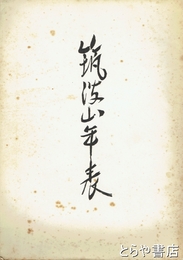 筑波山年表
とらや書店